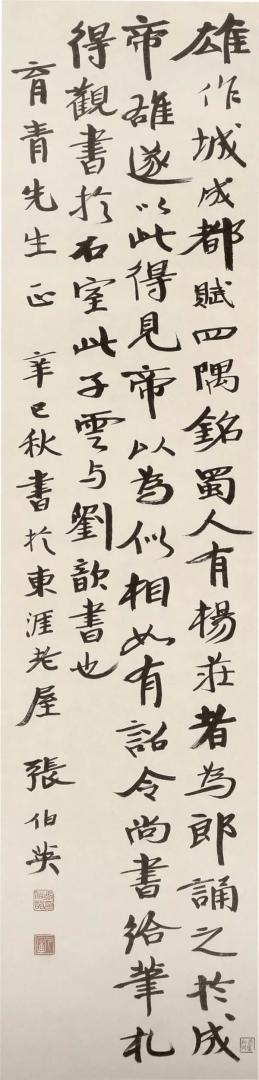 雄作城成都賦四隅銘蜀人有楊莊者為郎誦之於成
帝雄遂以此得見帝以為似相如有詔令尚書給筆札
得觀書於石室此子雲与劉歆書也
育青先生正 辛巳秋書於東涯老屋 張伯英